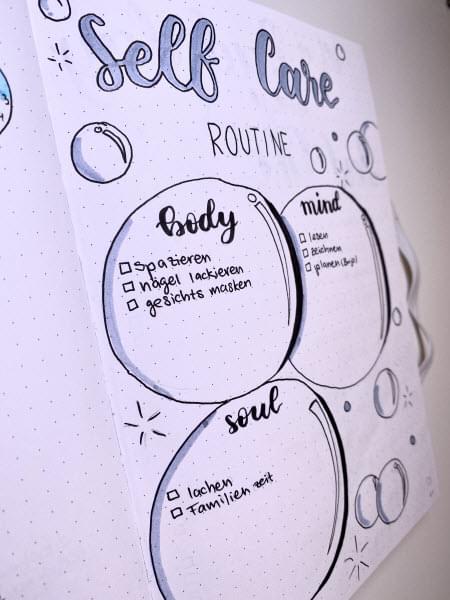 Self Care
ROUTINE
body
spazieren
nägel lackieren
gesichts masken
mind
lesen
zeichnen
planen (Bujo)
soul
lachen
Familien zeit